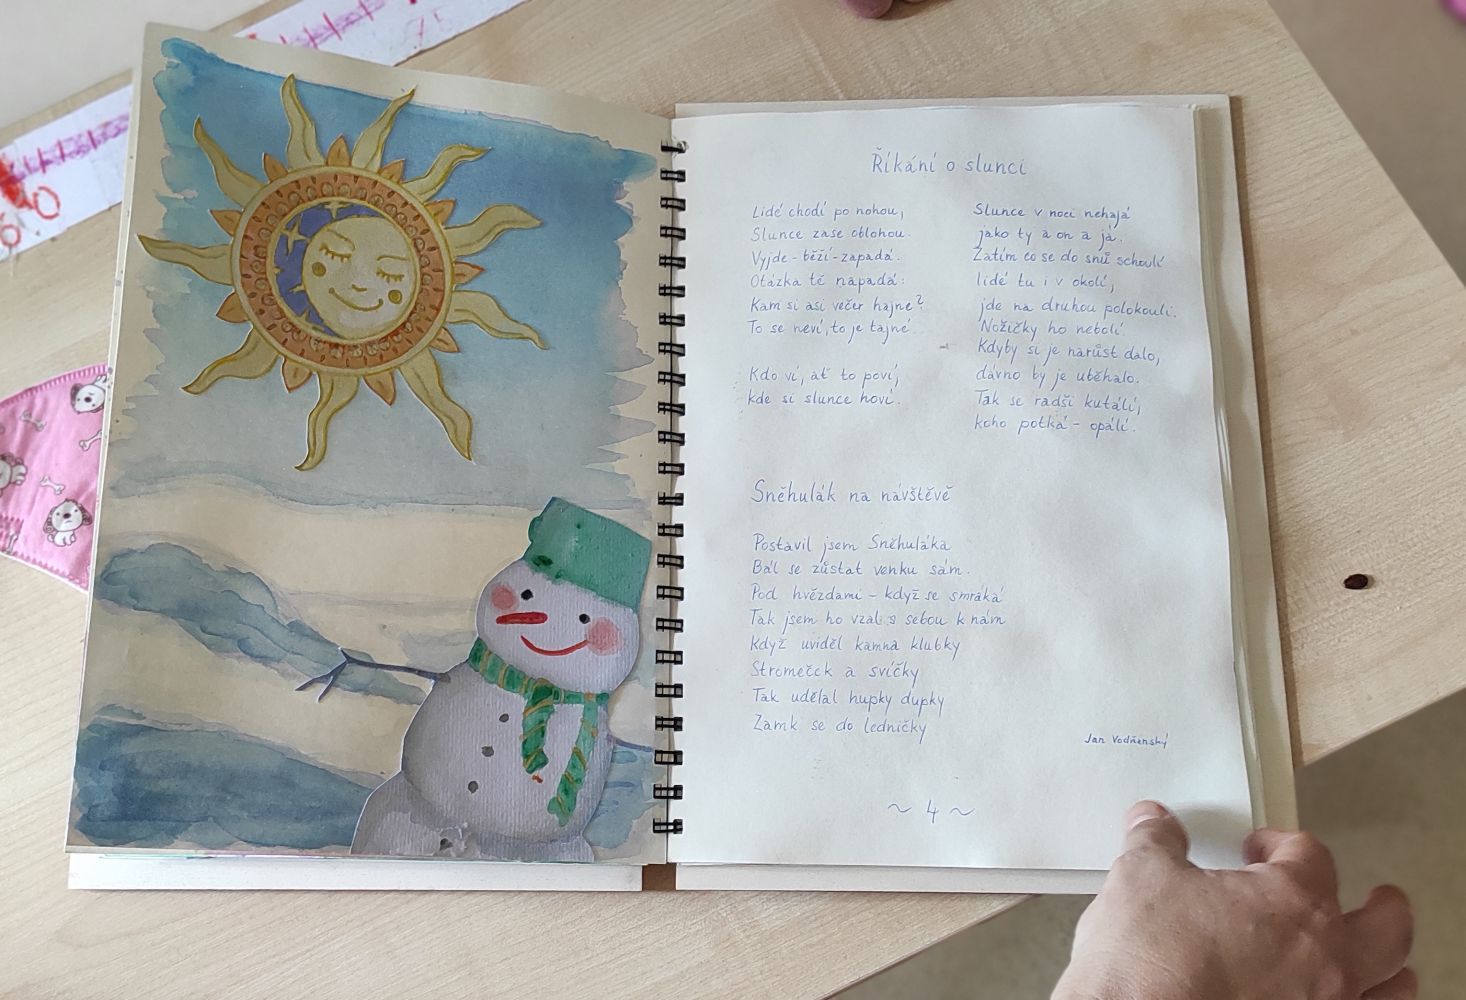 Říkání o slunci
Lidé chodí po nohou,
Slunce zase oblohou.
Vyjde - běží - zapadá.
Otázka tě napadá:
Kam si asi večer hajne?
To se neví, to je tajné.
Kdo ví, ať to poví,
kde si slunce hoví.
Slunce v noci nehajá
jako ty a on a já.
Zatím co se do snů schoulí
lidé tu i v okolí,
jde na druhou polokouli.
Nožičky ho nebolí.
Kdyby si je narůst dalo,
dávno by je uběhalo.
Tak se radši kutálí,
koho potká - opálí.
Sněhulák na návštěvě
Postavil jsem Sněhuláka
Bál se zůstat venku sám.
Pod hvězdami - když se smráká
Tak jsem ho vzal s sebou k nám
Když uviděl kamna klubky
Stromeček a svíčky
Tak udělal hupky dupky
Zamk se do ledničky
Jan Vodňanský
~ 4 ~